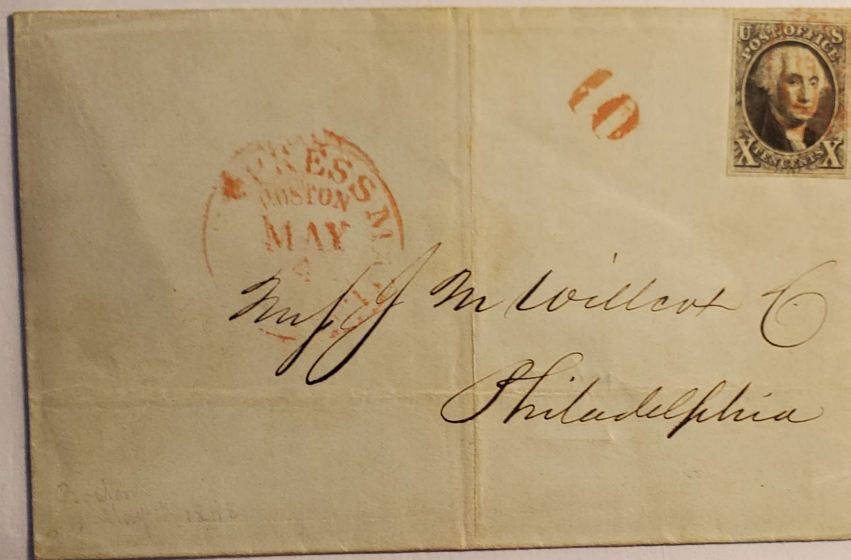 U S
POST OFFICE
X TEN CENTS X
10
EXPRESS MAIL
BOSTON
MAY
4
Mess J M Willcox C
Philadelphia